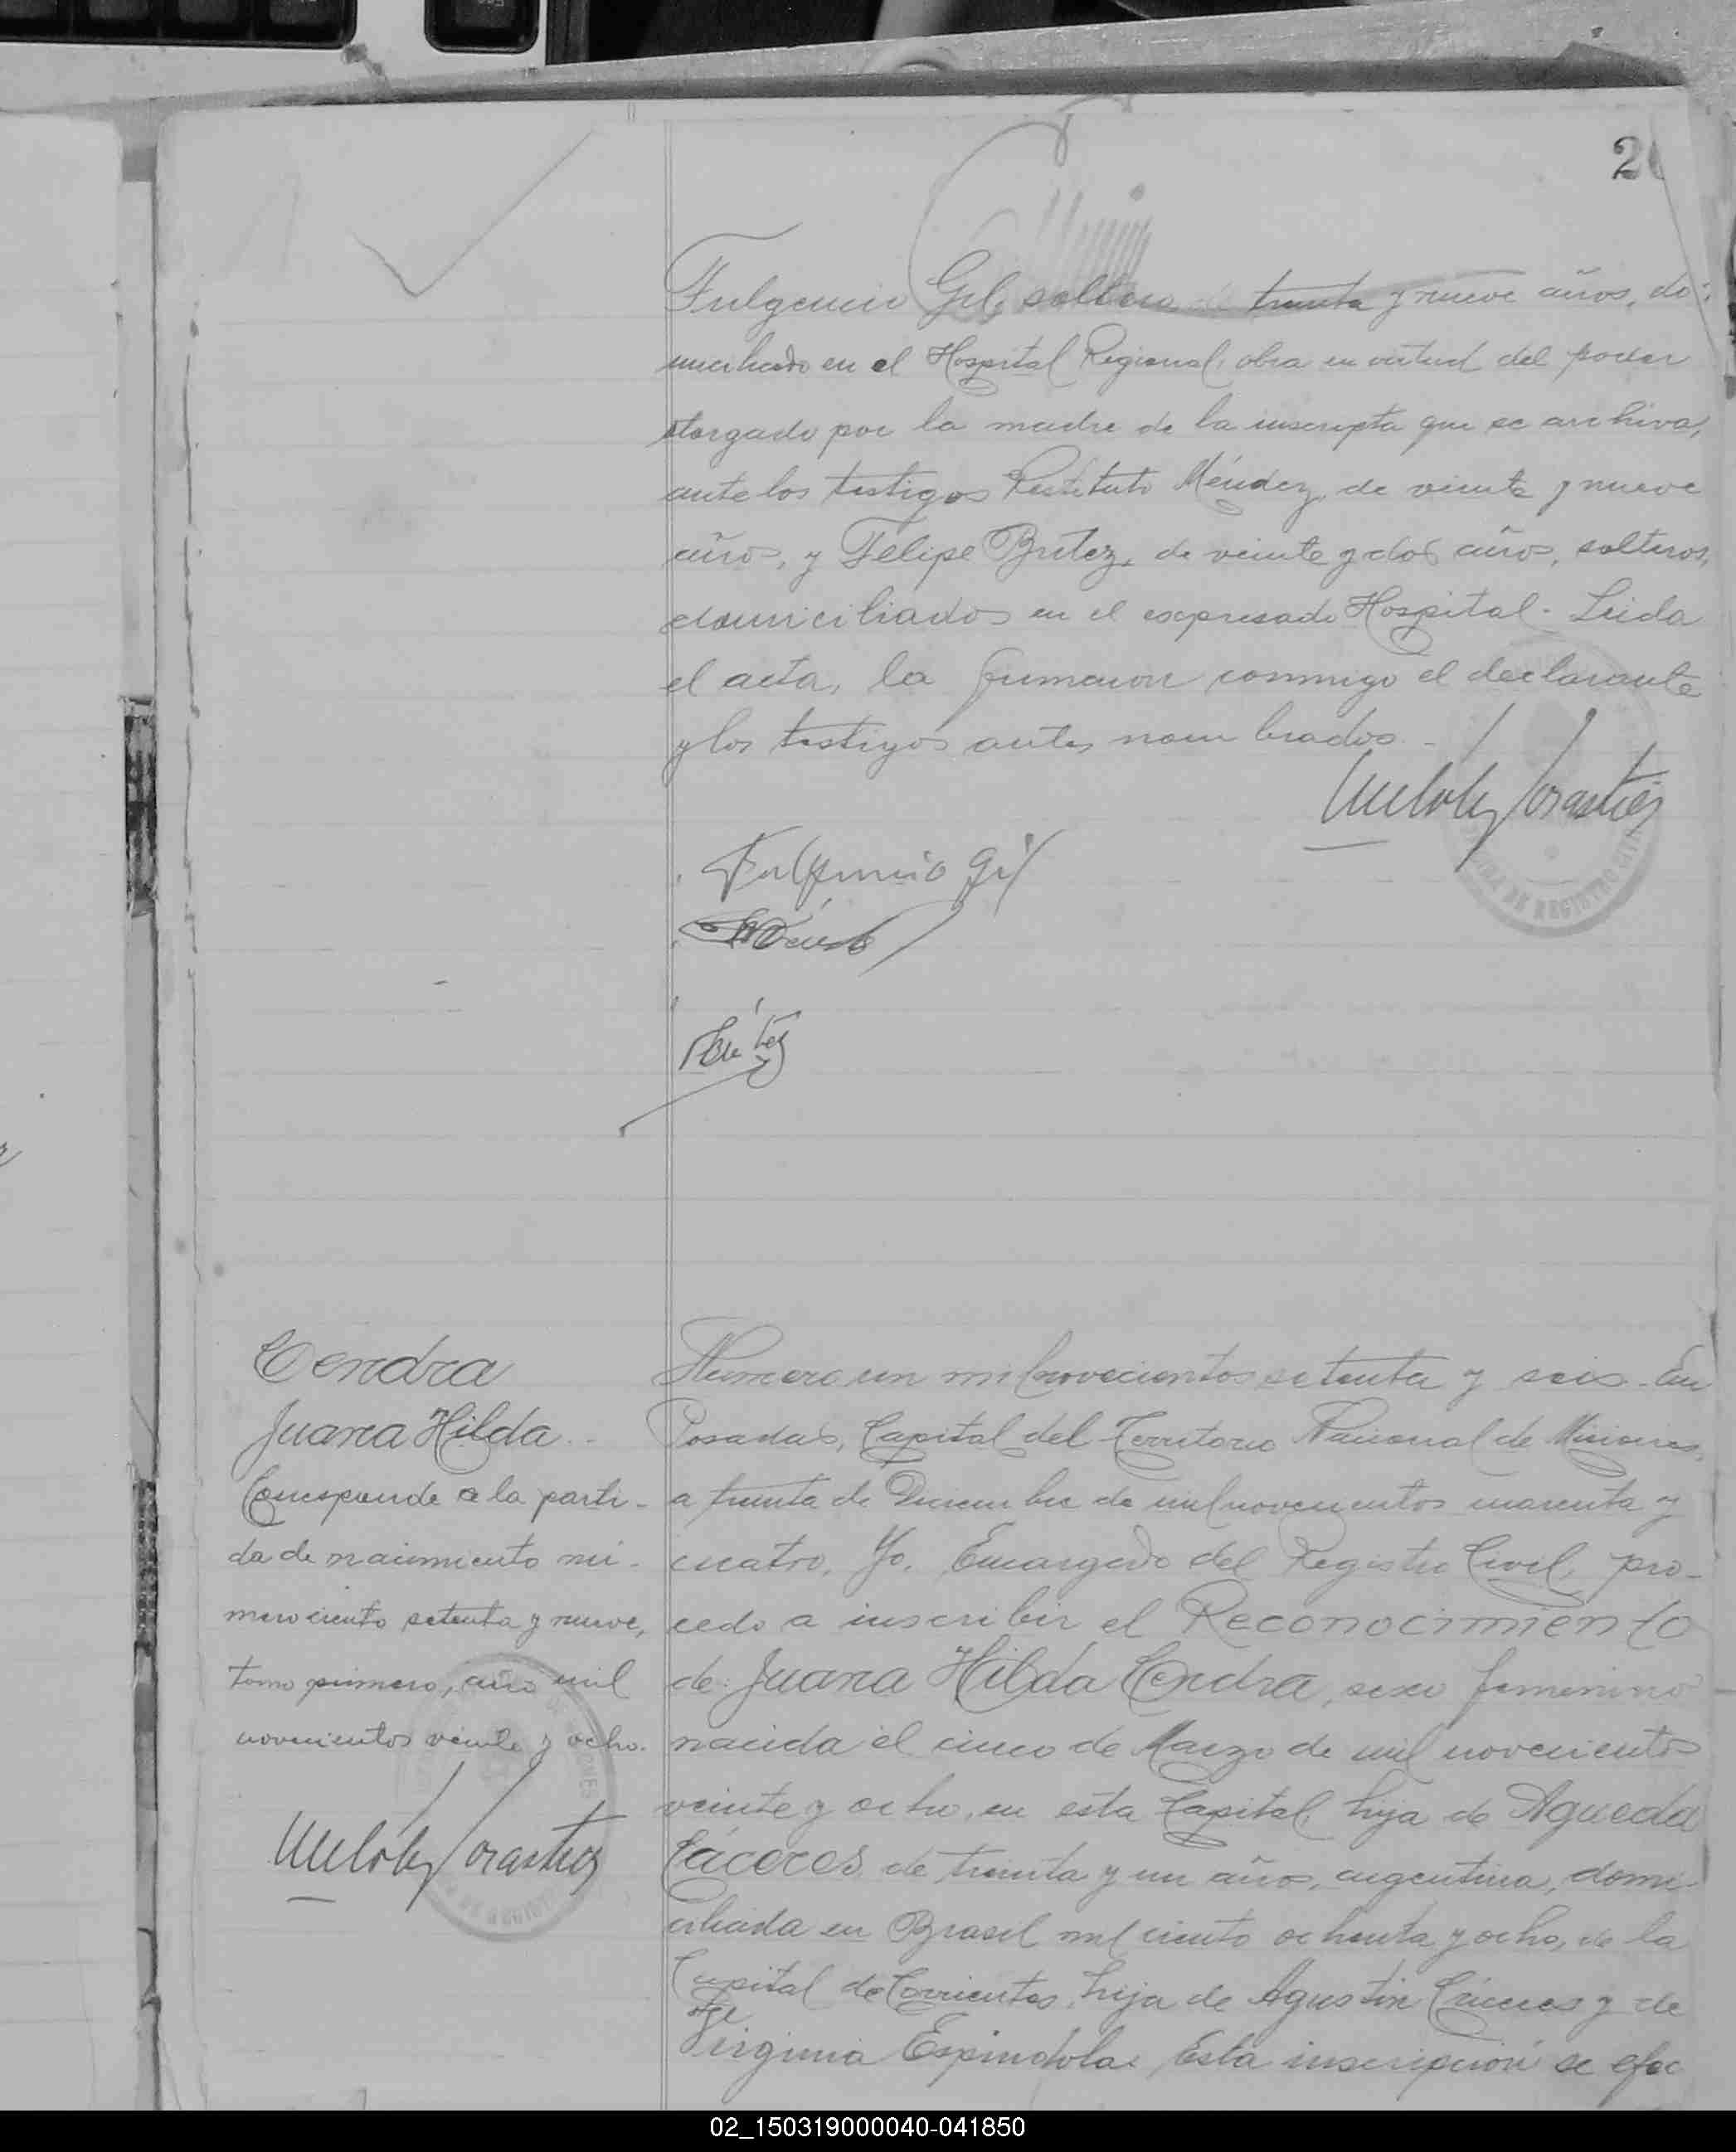 2
Fulgencio Gil, soltero, de treinta y nueve años, do-
miciliado en el Hospital Regional, obra en virtud del poder
otorgado por la madre de la inscripta que se archiva,
ante los testigos Restituto Méndez, de veinte y nueve
años, y Felipe Britez, de veinte y dos años, solteros,
domiciliados en el expresado Hospital. Leida
el acta, la firmaron conmigo el declarante
y los testigos antes nombrados.-
Fulgencio Gil
Britez
Cendra
Juana Hilda
Corresponde a la parti-
da de nacimiento nú-
mero ciento setenta y nueve,
tomo primero, año mil
novecientos veinte y ocho.
Número un mil novecientos setenta y seis. En
Posadas, Capital del Territorio Nacional de Misiones,
a treinta de Diciembre de mil novecientos cuarenta y
cuatro, Yo, Encargado del Registro Civil, pro-
cedo a inscribir el Reconocimiento
de: Juana Hilda Cendra, sexo femenino
nacida el cinco de Marzo de mil novecientos
veinte y ocho, en esta Capital, hija de Agueda
Cáceres, de treinta y un años, argentina, domi-
ciliada en Brasil mil ciento ochenta y ocho, de la
Capital de Corrientes, hija de Agustin Cáceres y de
Virginia Espindola. Esta inscripción se efec
02_150319000040-041850